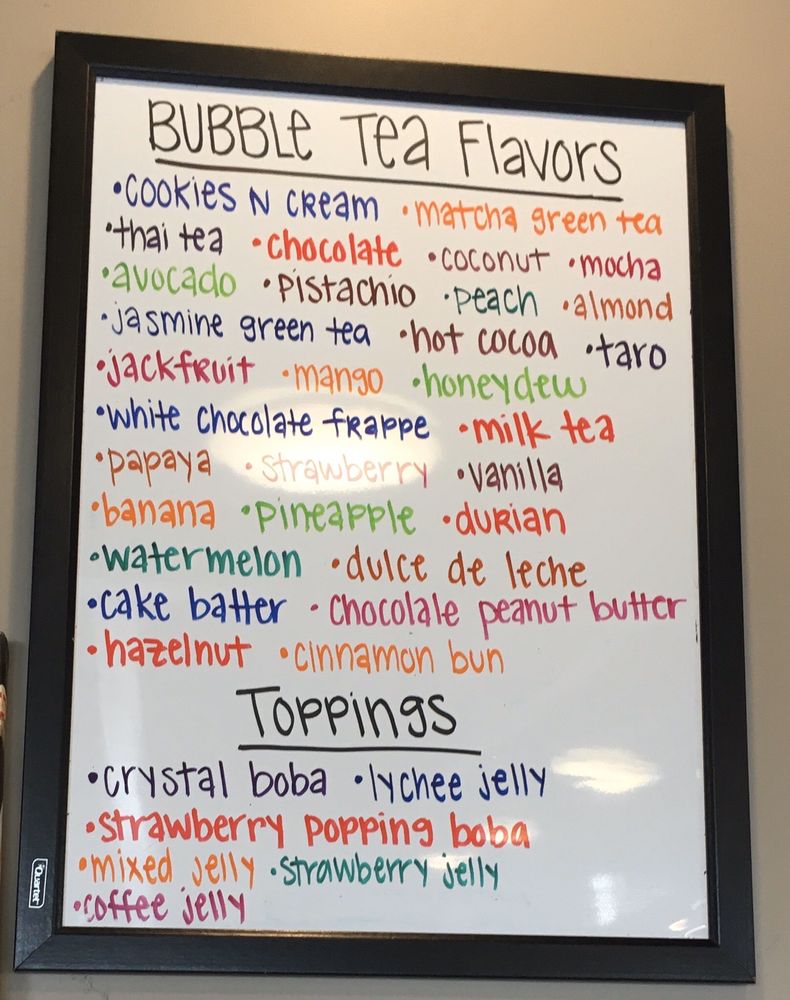 BUBBLE Tea Flavors
•COOKIES N CREAM •matcha green tea
•thai tea •chocolate •coconut •mocha
•avocado •pistachio •peach •almond
•jasmine green tea •hot cocoa •taro
•jackfruit •mango •honeydew
•white chocolate frappe •milk tea
•papaya •strawberry •vanilla
•banana •pineapple •durian
•watermelon •dulce de leche
•cake batter •chocolate peanut butter
•hazelnut •cinnamon bun
Toppings
•crystal boba •lychee jelly
•strawberry popping boba
•mixed jelly •strawberry jelly
•coffee jelly
Quartet